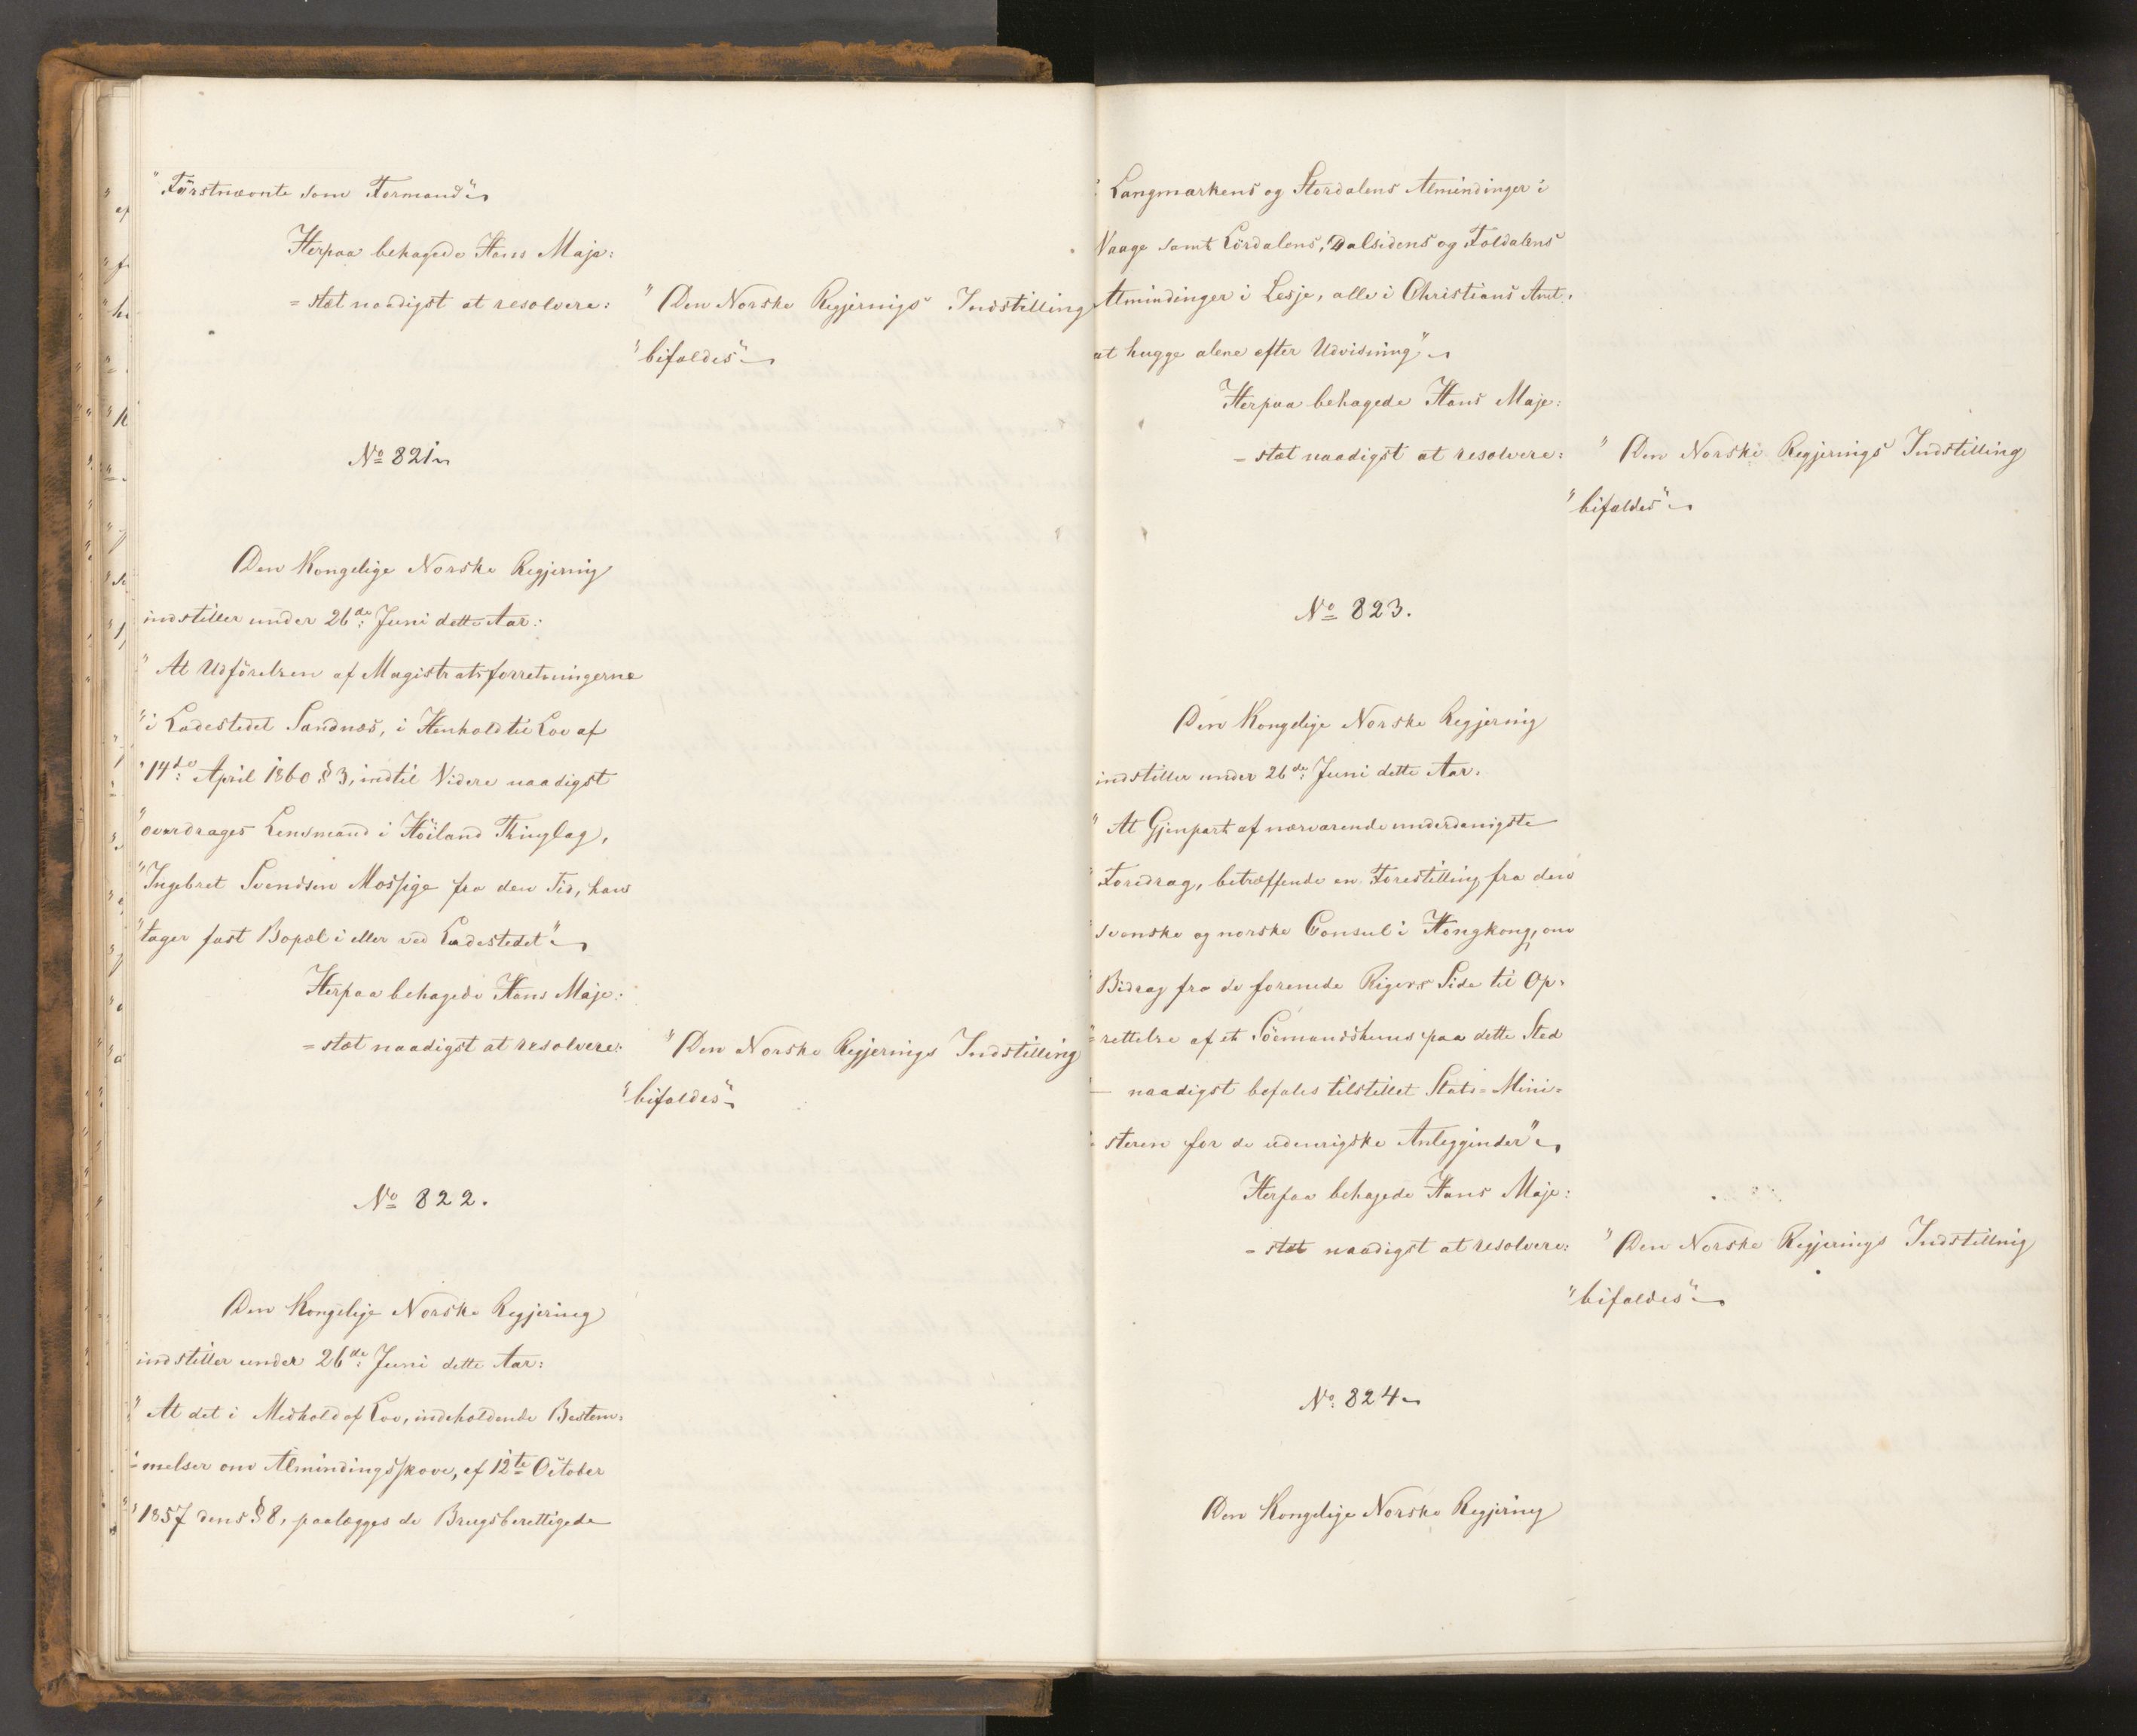 "Förstnævnte som Formand"
Herpaa behagede Hans Maje:
=stæt naadigst at resolvere:
"Den Norske Regjerings Indstilling
"bifaldes"
No 821
Den Kongelige Norske Regjering
indstiller under 26de Juni dette Aar:
"At Udförelsen af Magistratsforretningerne
"i Ladestedet Sandnæs, i Henhold til Lov af
"14de April 1860 § 3, indtil Videre naadigst
"overdrages Lensmand i Höiland Thinglag,
"Ingebret Svendsen Mossige fra den Tid, han
"tager fast Bopæl i eller ved Ladestedet"
Herpaa behagede Hans Maje:
=stæt naadigst at resolvere:
"Den Norske Regjerings Indstilling
"bifaldes"
No 822.
Den Kongelige Norske Regjering
indstiller under 26de Juni dette Aar:
"At det i Medhold af Lov, indeholdende Bestem=
"=melser om Almindingsskove, af 12te October
"1857 dens § 8, paalægges de Brugsberettigede
"Langmarkens og Stordalens Almindinger i
Vaage samt Lördalens, Dalsidens og Foldalens
Almindinger i Lesje, alle i Christians Amt,
at hugge alene efter Udvisning"
Herpaa behagede Hans Maje:
=stæt naadigst at resolvere:
"Den Norske Regjerings Indstilling
"bifaldes"
No 823.
Den Kongelige Norske Regjering
indstiller under 26de Juni dette Aar.
"At Gjenpart af nærværende underdanigste
"Foredrag, betræffende en Forestilling fra den
"svenske og norske Consul i Hongkong, om
"Bidrag fra de forenede Rigers Side til Op=
"=rettelse af et Sömandshuus paa dette Sted
"— naadigst befales tilstillet Stats=Mini=
"=steren for de udenrigske Anliggender"
Herpaa behagede Hans Maje:
=stæt naadigst at resolvere:
"Den Norske Regjerings Indstilling
"bifaldes"
No 824
Den Kongelige Norske Regjering